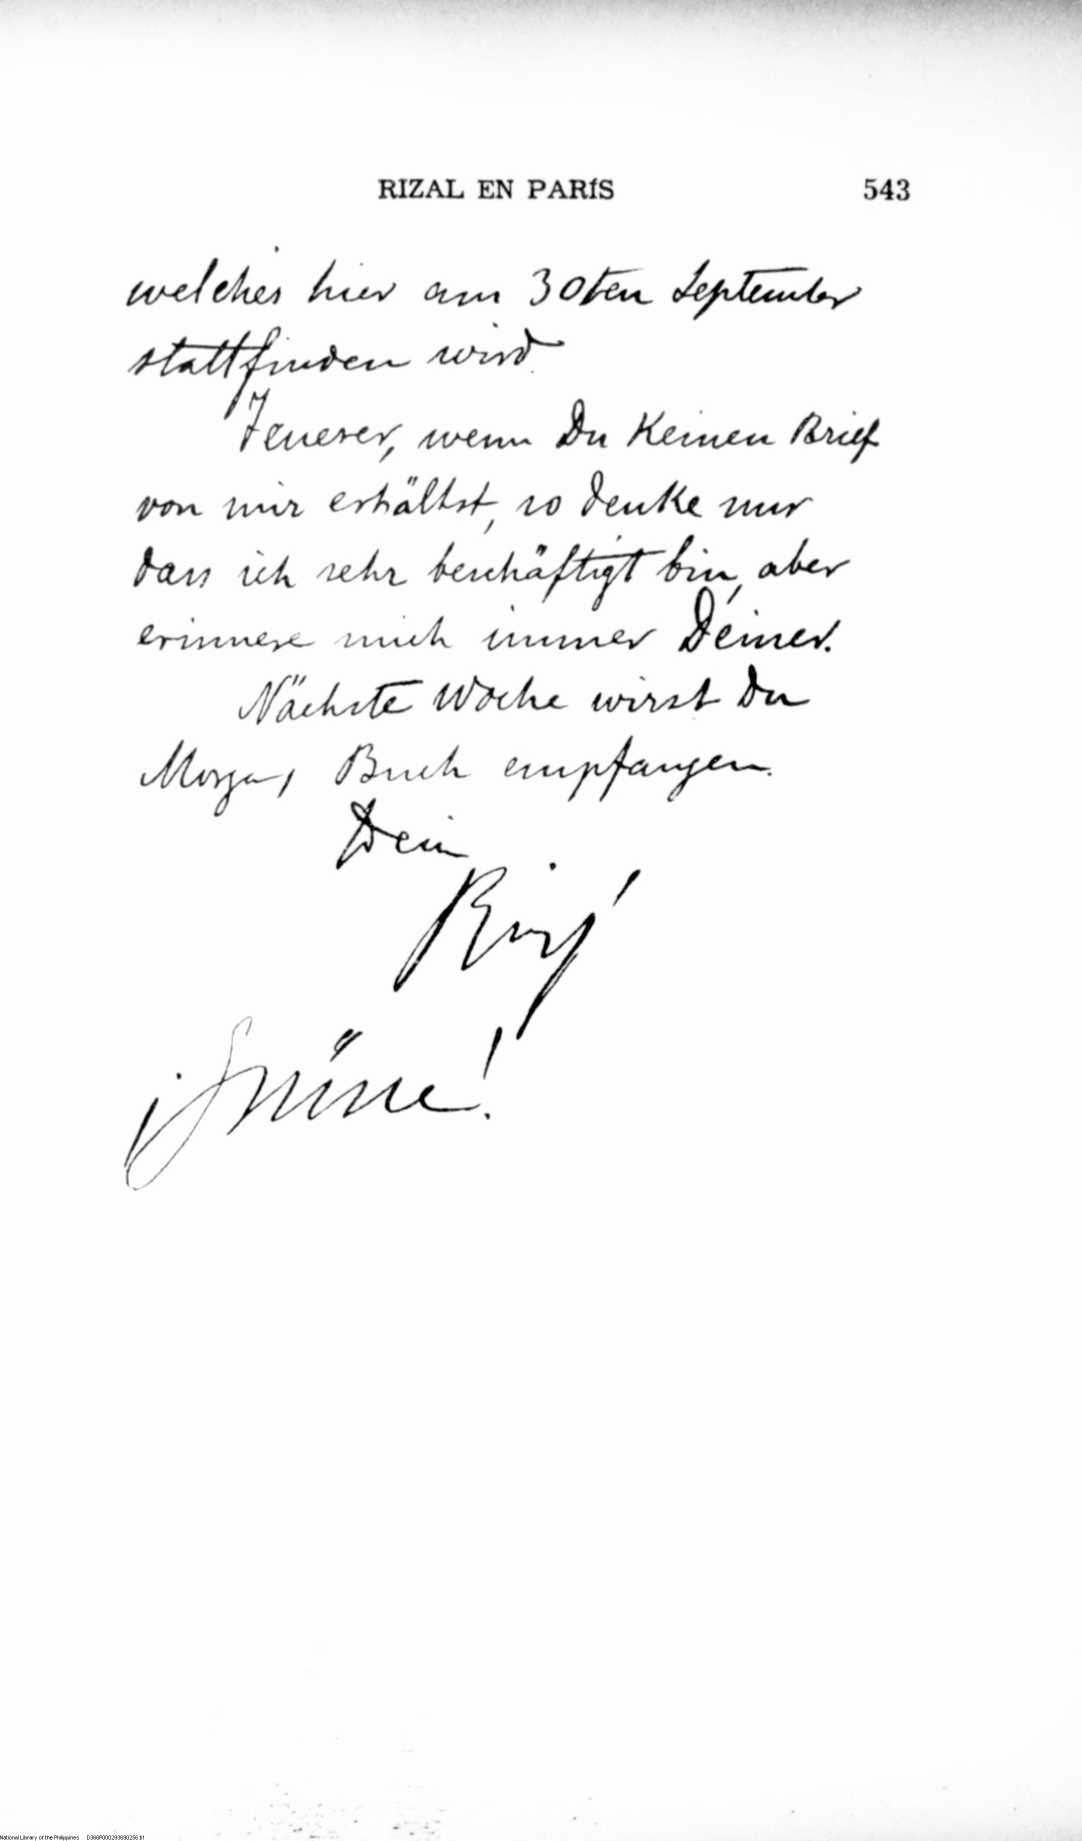 RIZAL EN PARÍS 543
welches hier am 30ten September
stattfinden wird.
Teuerer, wenn Du Keinen Brief
von mir erhältst, so denke nur
dass ich sehr beschäftigt bin, aber
erinnere mich immer Deiner.
Nächste Woche wirst Du
Morgas Buch empfangen.
Dein
National Library of the Philippines